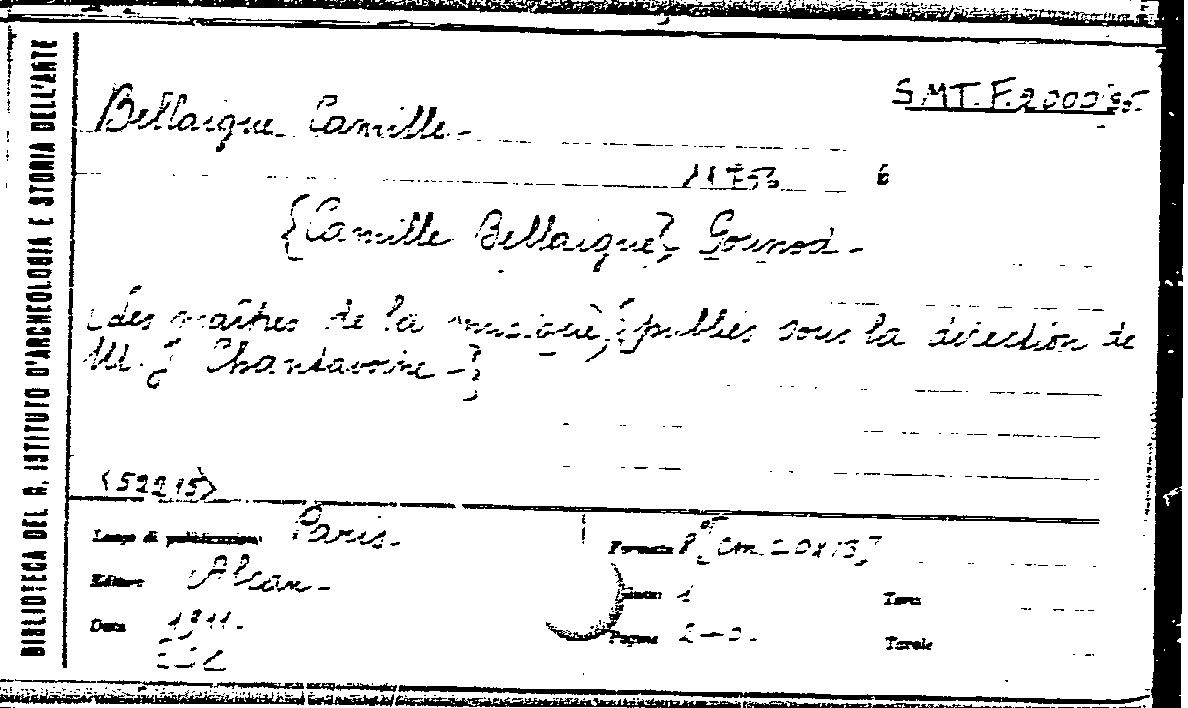 BIBLIOTECA DEL R. ISTITUTO D'ARCHEOLOGIA E STORIA DELL'ARTE
S.MT.F.2000/95
Bellaigue Camille -
11753 6
{Camille Bellaigue}, Gounod -
(Les maîtres de la musique, {publiés sous la direction de
M. J Chantavoine -}
<52215>
Luogo di pubblicazione Paris -
Formato 8° [cm 20x13]
Editore Alcan -
1 Tomi
Data 1911 -
Pagine Tavole